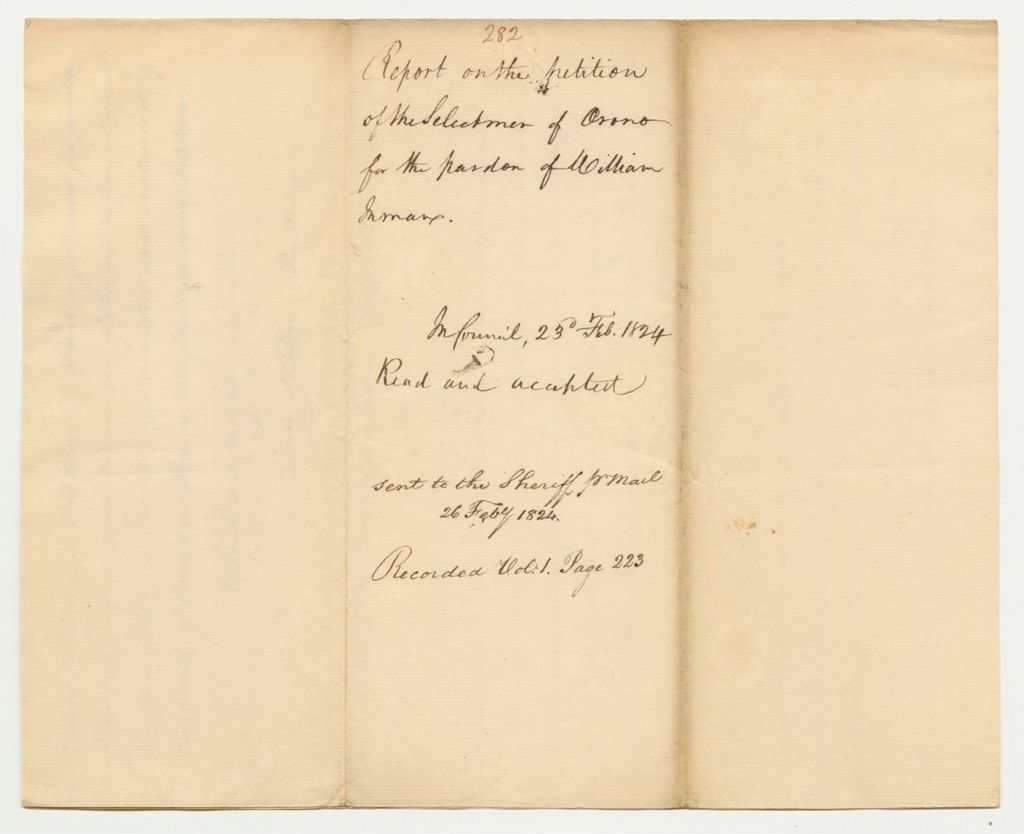 282
Report on the petition
of the Selectmen of Orono
for the pardon of William
Inman.
In Council, 23d Feb. 1824
Read and accepted
sent to the Sheriff pr mail
26 Feby 1824.
Recorded Vol: 1. Page 223